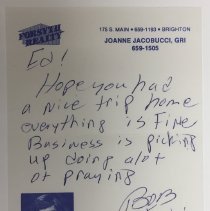 FORSYTH
REALTY
175 S. MAIN • 659-1193 • BRIGHTON
JOANNE JACOBUCCI, GRI
659-1505
Ed!
Hope you had
a nice trip home
everything is Fine
Business is picking
up doing alot
of praying
Bob